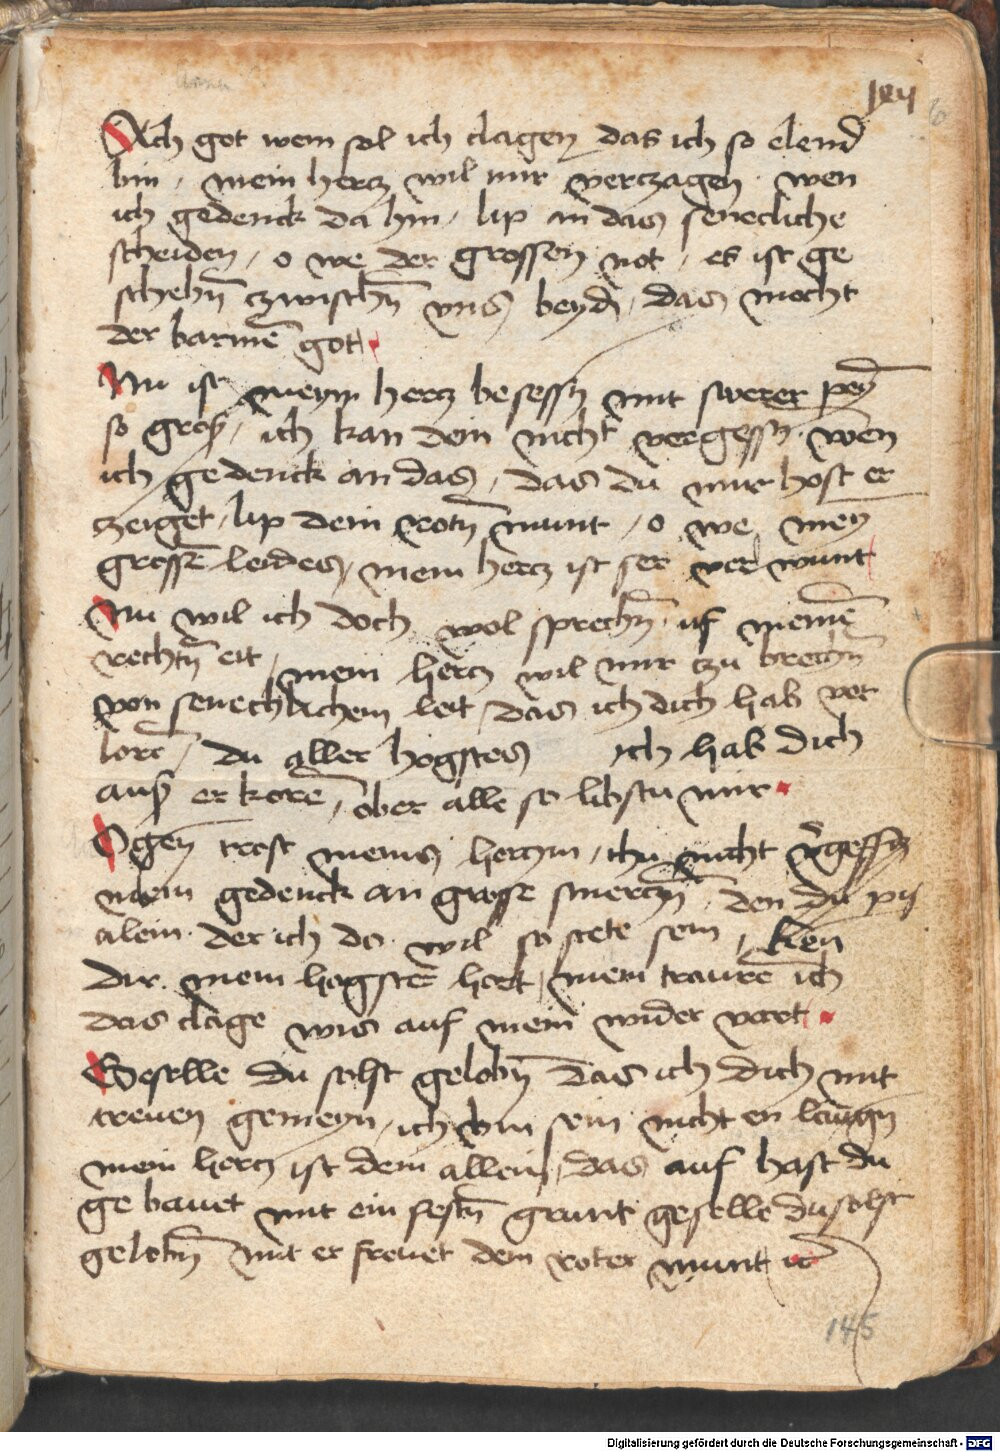 Ach got wem sol ich clagen das ich so elend
bin / mein hercz wil mir verczagen · wen
ich gedenck da hin / lip an das senecliche
scheiden / o we der grossen not / es ist ge
schehn̄ czwischn̄ vns beyd / das mocht
der barmē got
Nu ist meyn hercz besessn mit swerer peȳ
so groß / ich kan dein nicht vergessn · wen
ich gedenck an das / das du mir host er
czeiget / lip dein rotn̄ munt / o we mey
grossē leides / mein hercz ist ser ver wunt
Nu wil ich doch wol sprechn̄ uf meinē
rechtn̄ eit / mein hercz wil mir czu brechn̄
von senechlichem leit / das ich dich hab ver
lorē / du aller hogstes ich hab dich
auß er korē / ober alle so libstu mir
trost meins herczin / thu nicht v̄gessn
mein gedenck an grosse smerczn̄ den du pis
alein · der ich do wil so stete sein / ken
dir · mein hogster hort / mein traurē ich
das clage wis auf mein wider vart
Geselle du solst gelobn̄ das ich dich mit
treuen gemeyn / ich bin sein nicht en laugn̄
mein hercz ist dein allein / das auf hast du
ge bauet mit ein festn̄ grunt geselle du solst
gelobn̄ mit er freuet dein roter munt ic
145
Digitalisierung gefördert durch die Deutsche Forschungsgemeinschaft - DFG